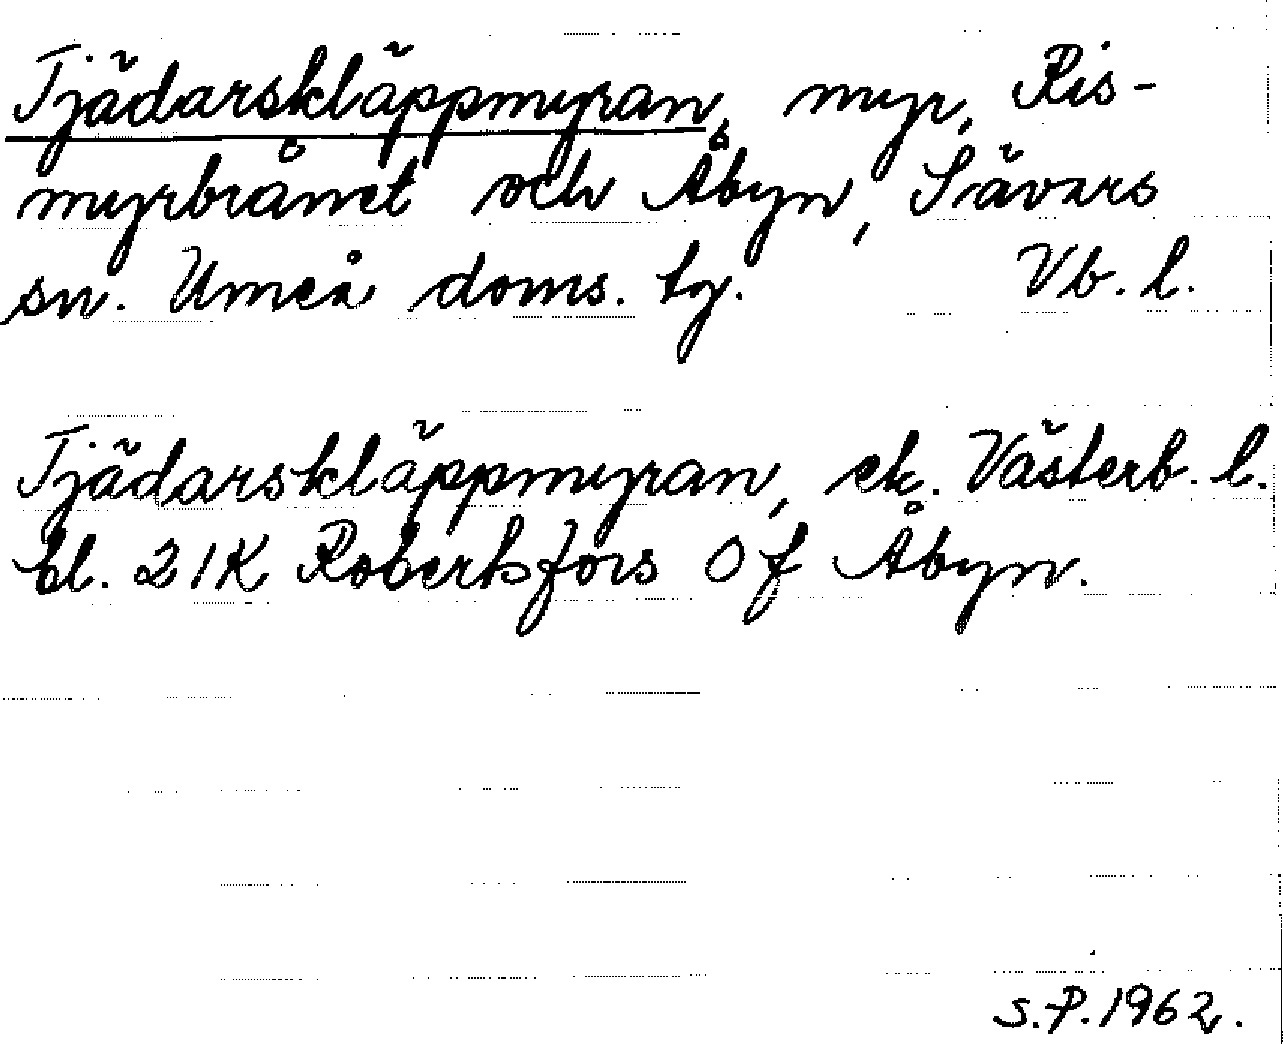 Tjädarskläppmyran, myr, Ris-
myrbrånet och Åbyn, Sävars
sn. Umeå doms. tg. Vb. l.
Tjädarskläppmyran, ek. Västerb. l.
bl. 21K Robertsfors 0 f Åbyn.
S.P. 1962.